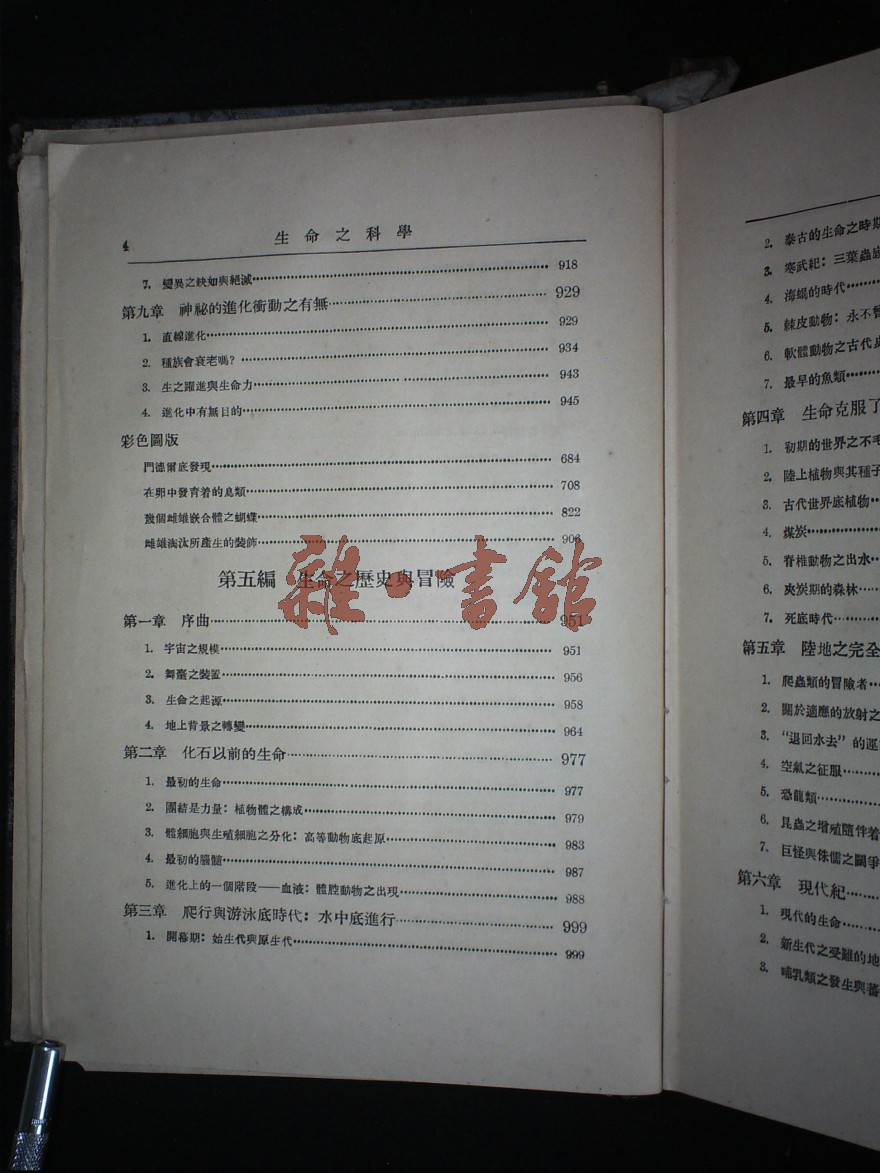 4
生命之科學
7. 變異之缺如與絕滅 918
第九章 神祕的進化衝動之有無 929
1. 直線進化 929
2. 種族會衰老嗎? 934
3. 生之躍進與生命力 943
4. 進化中有無目的 945
彩色圖版
門德爾底發現 684
在卵中發育着的鳥類 708
幾個雌雄嵌合體之蝴蝶 822
雌雄淘汰所產生的裝飾 906
第五編 生命之歷史與冒險
雜·書館
第一章 序曲 951
1. 宇宙之規模 951
2. 舞臺之裝置 956
3. 生命之起源 958
4. 地上背景之轉變 964
第二章 化石以前的生命 977
1. 最初的生命 977
2. 團結是力量:植物體之構成 979
3. 體細胞與生殖細胞之分化:高等動物底起原 983
4. 最初的腦髓 987
5. 進化上的一個階段——血液:體腔動物之出現 988
第三章 爬行與游泳底時代:水中底進行 999
1. 開幕期:始生代與原生代 999
2. 泰古的生命之時期
3. 寒武紀:三葉蟲底
4. 海蝎的時代
5. 棘皮動物:永不
6. 軟體動物之古代
7. 最早的魚類
第四章 生命克服了
1. 初期的世界之不毛
2. 陸上植物與其種子
3. 古代世界底植物
4. 煤炭
5. 脊椎動物之出水
6. 夾炭期的森林
7. 死底時代
第五章 陸地之完全
1. 爬蟲類的冒險者
2. 關於適應的放射之
3. “退回水去”的運
4. 空氣之征服
5. 恐龍類
6. 昆蟲之增殖隨伴着
7. 巨怪與侏儒之鬬爭
第六章 現代紀
1. 現代的生命
2. 新生代之受難的地
3. 哺乳類之發生與蕃